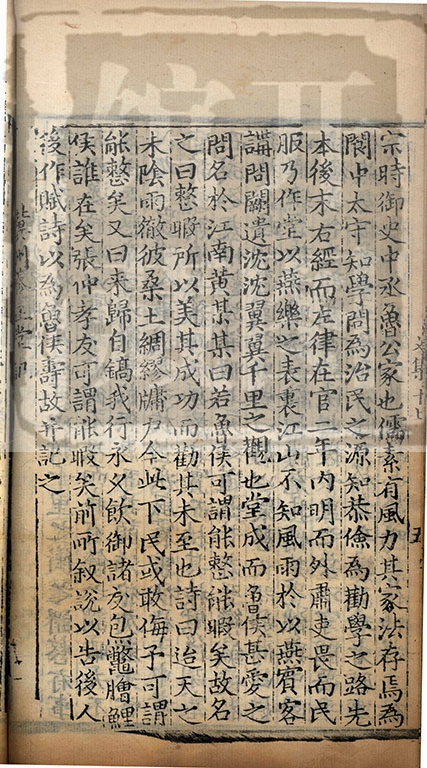 宗時御史中丞魯公家也儒素有風力其家法存焉為
閬中太守知學問為治民之源知恭儉為勸學之路先
本後末右經而左律在官二年內明而外肅吏畏而民
服乃作堂以燕樂之表裏江山不知風雨於以燕賓客
講問闕遺沈沈翼翼千里之觀也堂成而魯侯甚愛之
問名於江南黃某某曰若魯侯可謂能整能暇矣故名
之曰整暇所以美其成功而勸其未至也詩曰迨天之
未陰雨徹彼桑土綢繆牖戶今此下民或敢侮予可謂
能整矣又曰來歸自鎬我行永久飲御諸友包鼈膾鯉
侯誰在矣張仲孝友可謂能暇矣前所叙說以告後人
後作賦詩以為魯侯壽故并記之